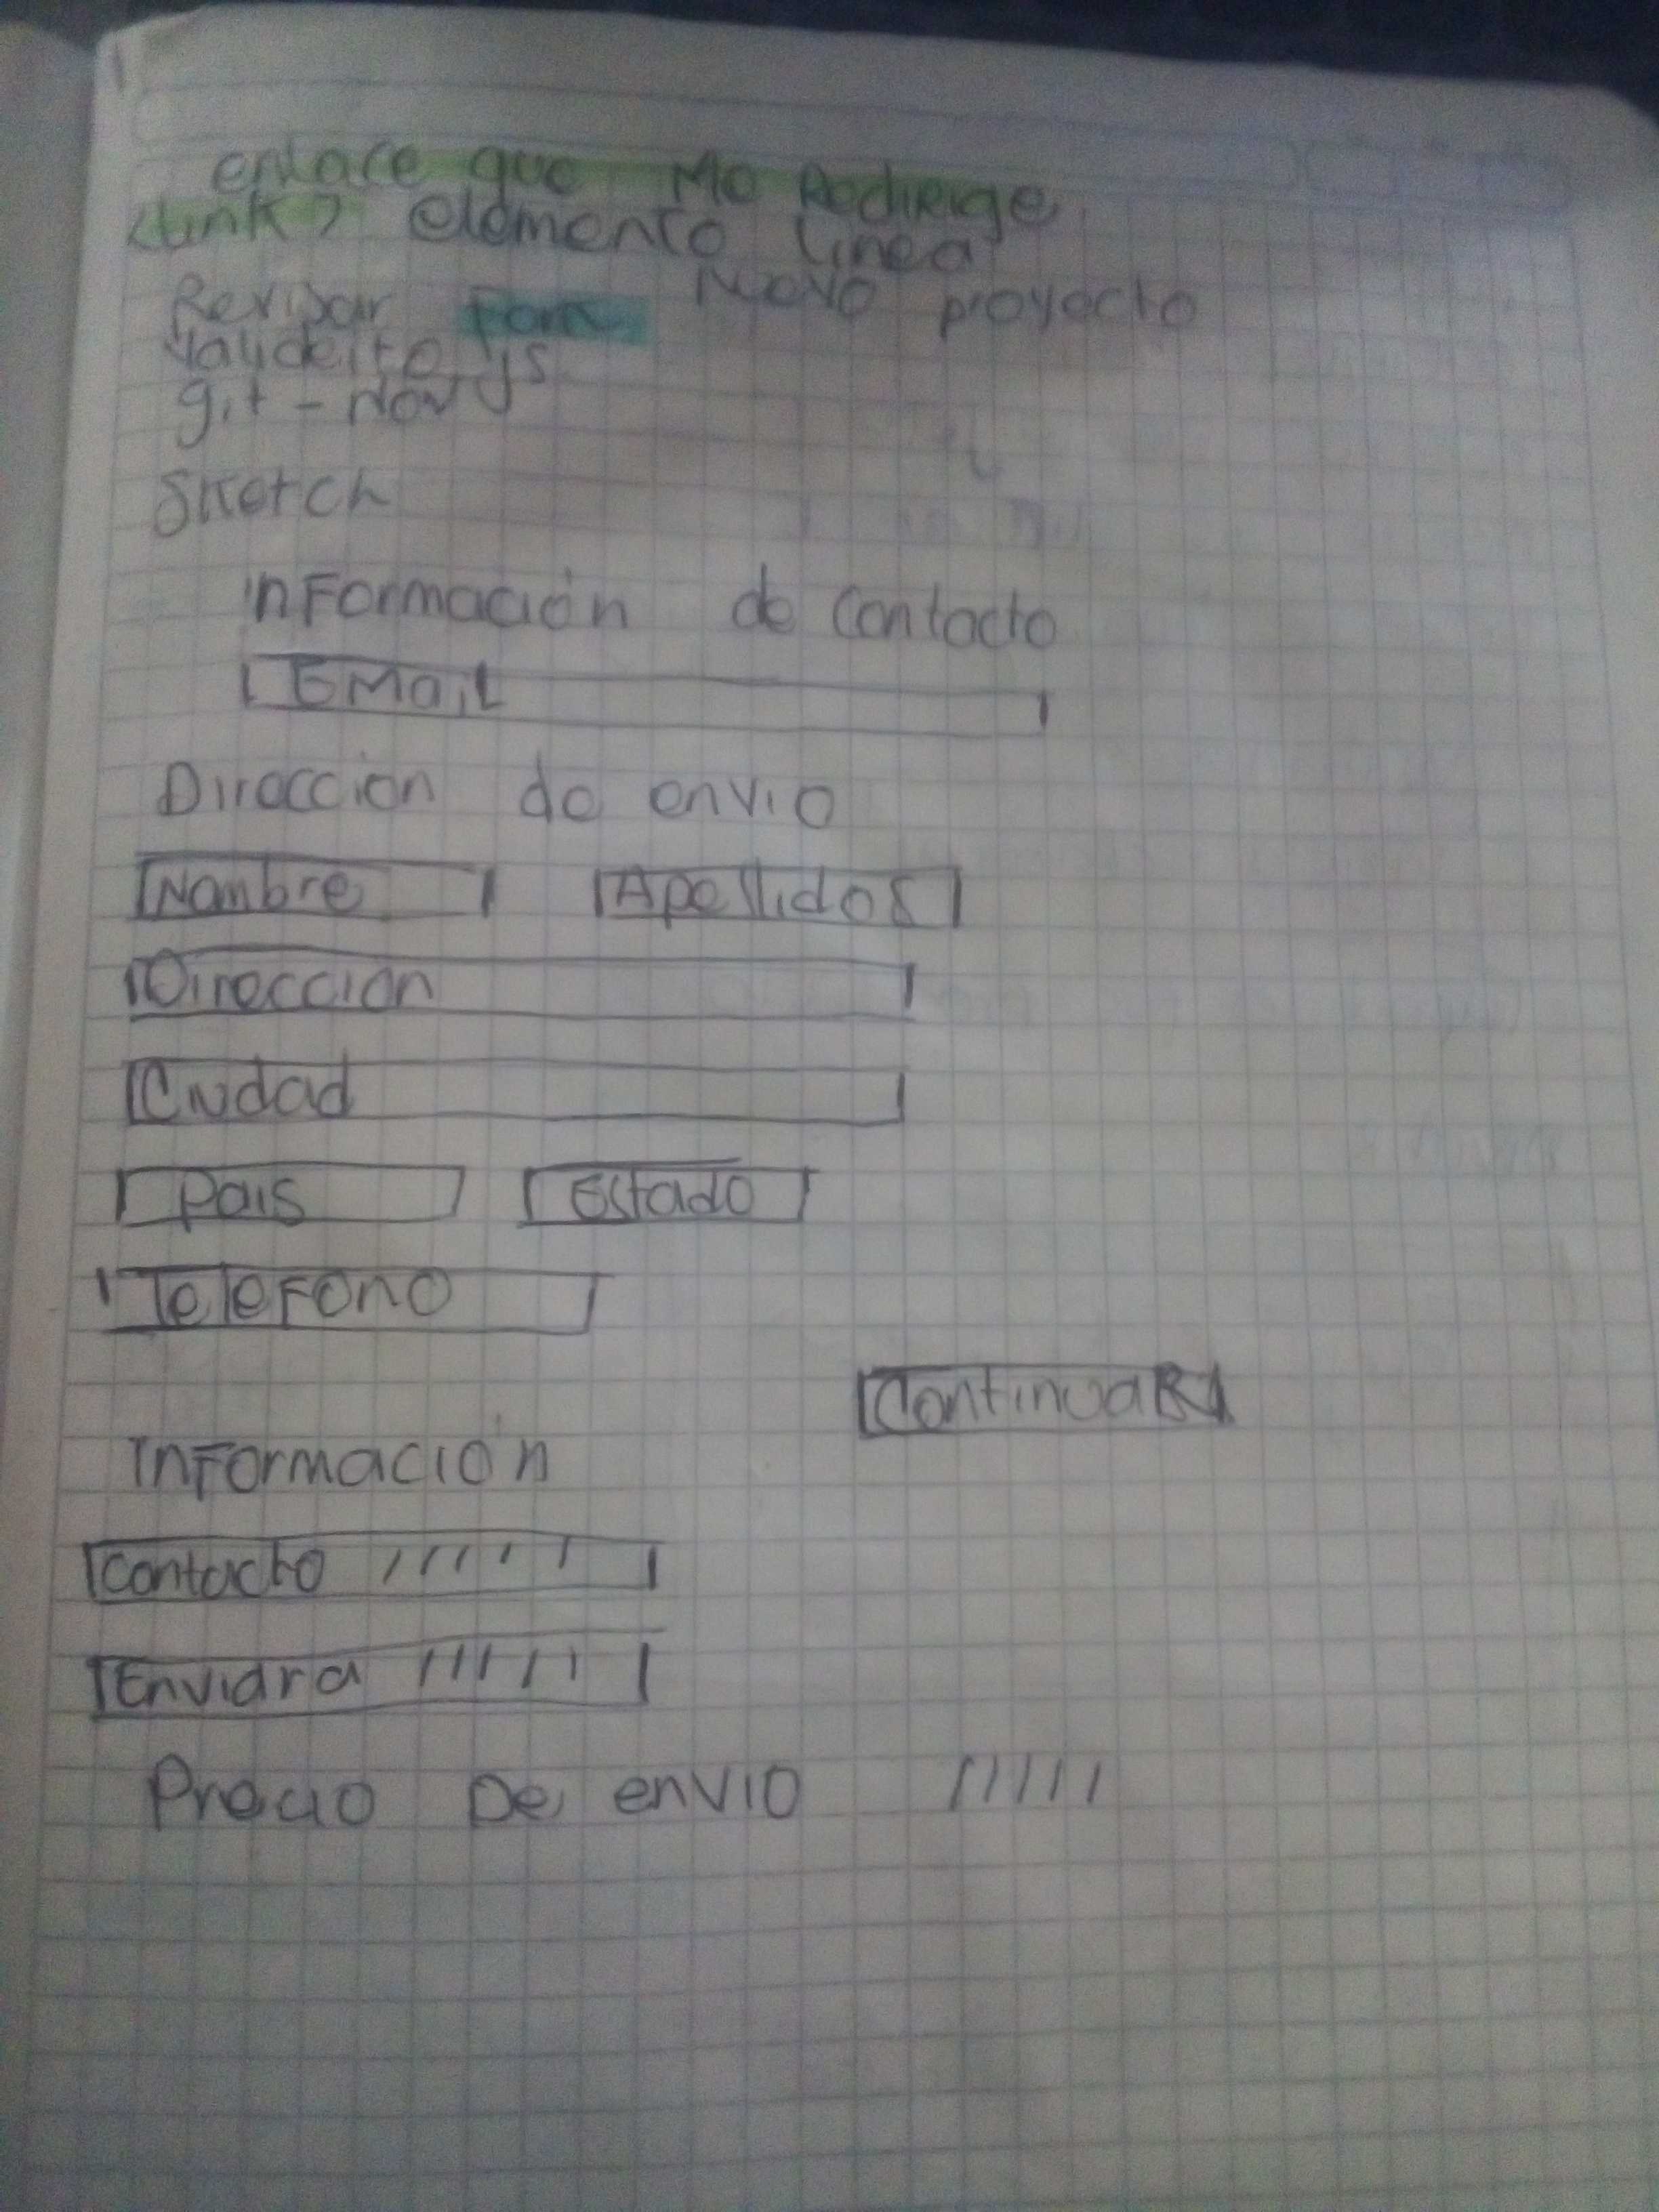 enlace que Me Redirige
<Link> elemento linea
Revisar Form Nuevo proyecto
Valideito js
git - Now
Sketch
informaciòn de contacto
EMail
Direccion de envio
Nombre Apellidos
Direccion
Ciudad
Pais Estado
Telefono
ContinuaR
Información
Contacto / / / / /
Enviara / / / / /
Precio De envio / / / / /